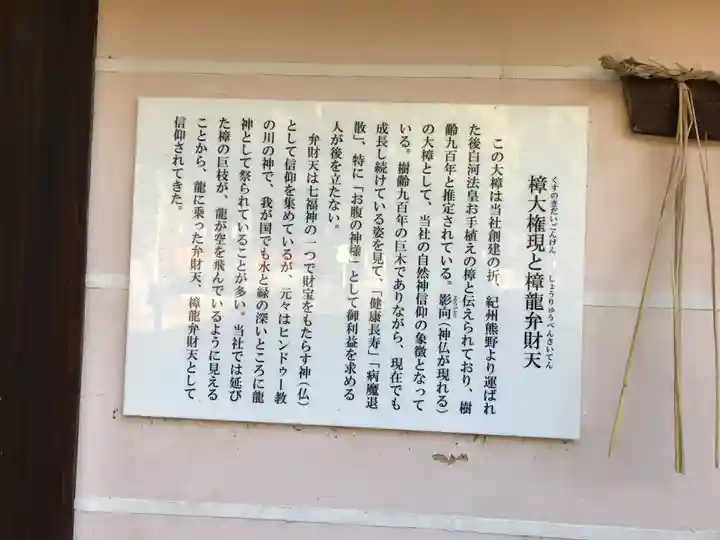 くすのきだいごんげん しょうりゅうべんざいてん
樟大権現と樟龍弁財天
この大樟は当社創建の折、紀州熊野より運ばれ
た後白河法皇お手植えの樟と伝えられており、樹
齢九百年と推定されている。影向（神仏が現れる）
ようごう
の大樟として、当社の自然神信仰の象徴となって
いる。樹齢九百年の巨木でありながら、現在でも
成長し続けている姿を見て、「健康長寿」「病魔退
散」、特に「お腹の神様」として御利益を求める
人が後を立たない。
弁財天は七福神の一つで財宝をもたらす神（仏）
として信仰を集めているが、元々はヒンドゥー教
の川の神で、我が国でも水と緑の深いところに龍
神として祭られていることが多い。当社では延び
た樟の巨枝が、龍が空を飛んでいるように見える
ことから、龍に乗った弁財天、樟龍弁財天として
信仰されてきた。